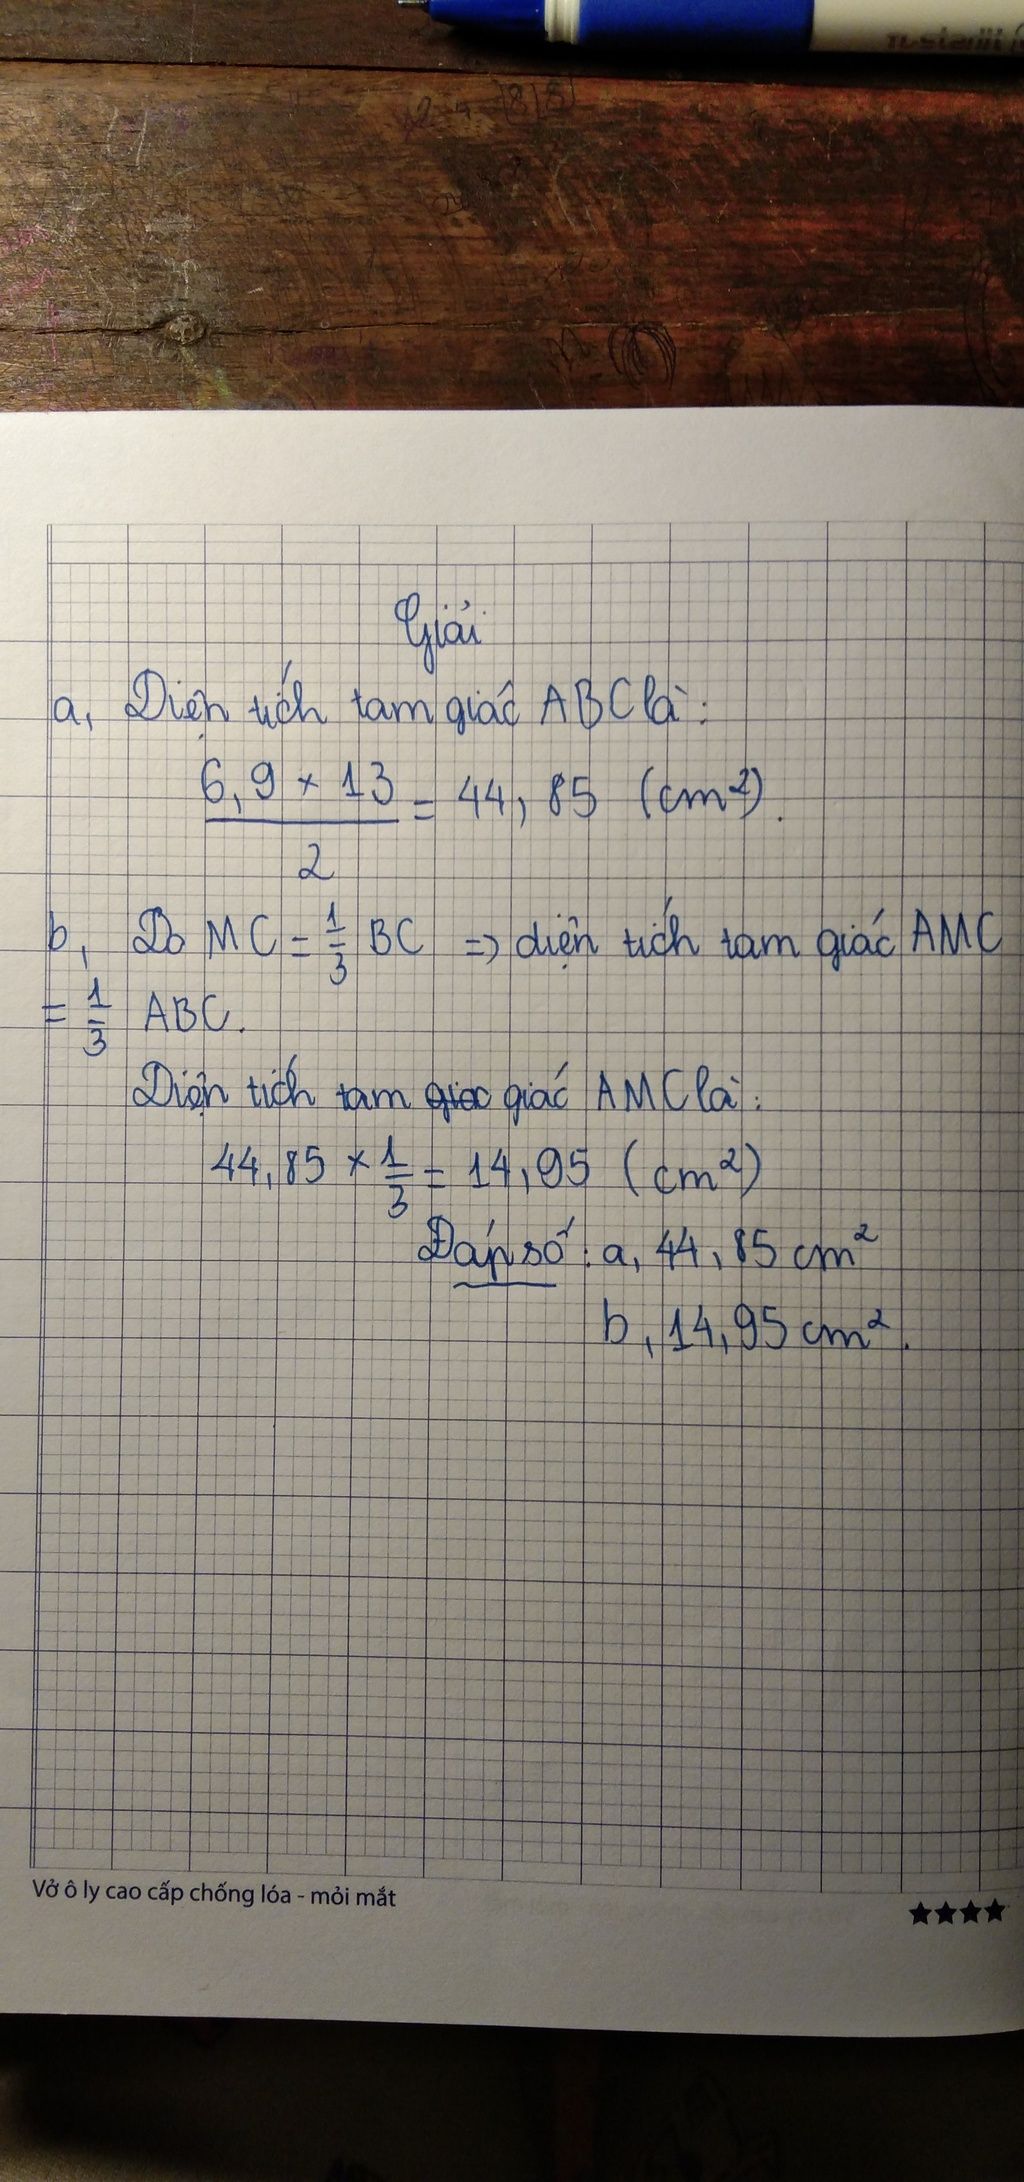 Giải
a, Diện tích tam giác ABC là:
6,9 × 13 / 2 = 44,85 (cm²).
b, Do MC = 1/3 BC => diện tích tam giác AMC
= 1/3 ABC.
Diện tích tam giác giác AMC là:
44,85 × 1/3 = 14,95 (cm²)
Đáp số: a, 44,85 cm²
b, 14,95 cm².
Vở ô ly cao cấp chống lóa - mỏi mắt